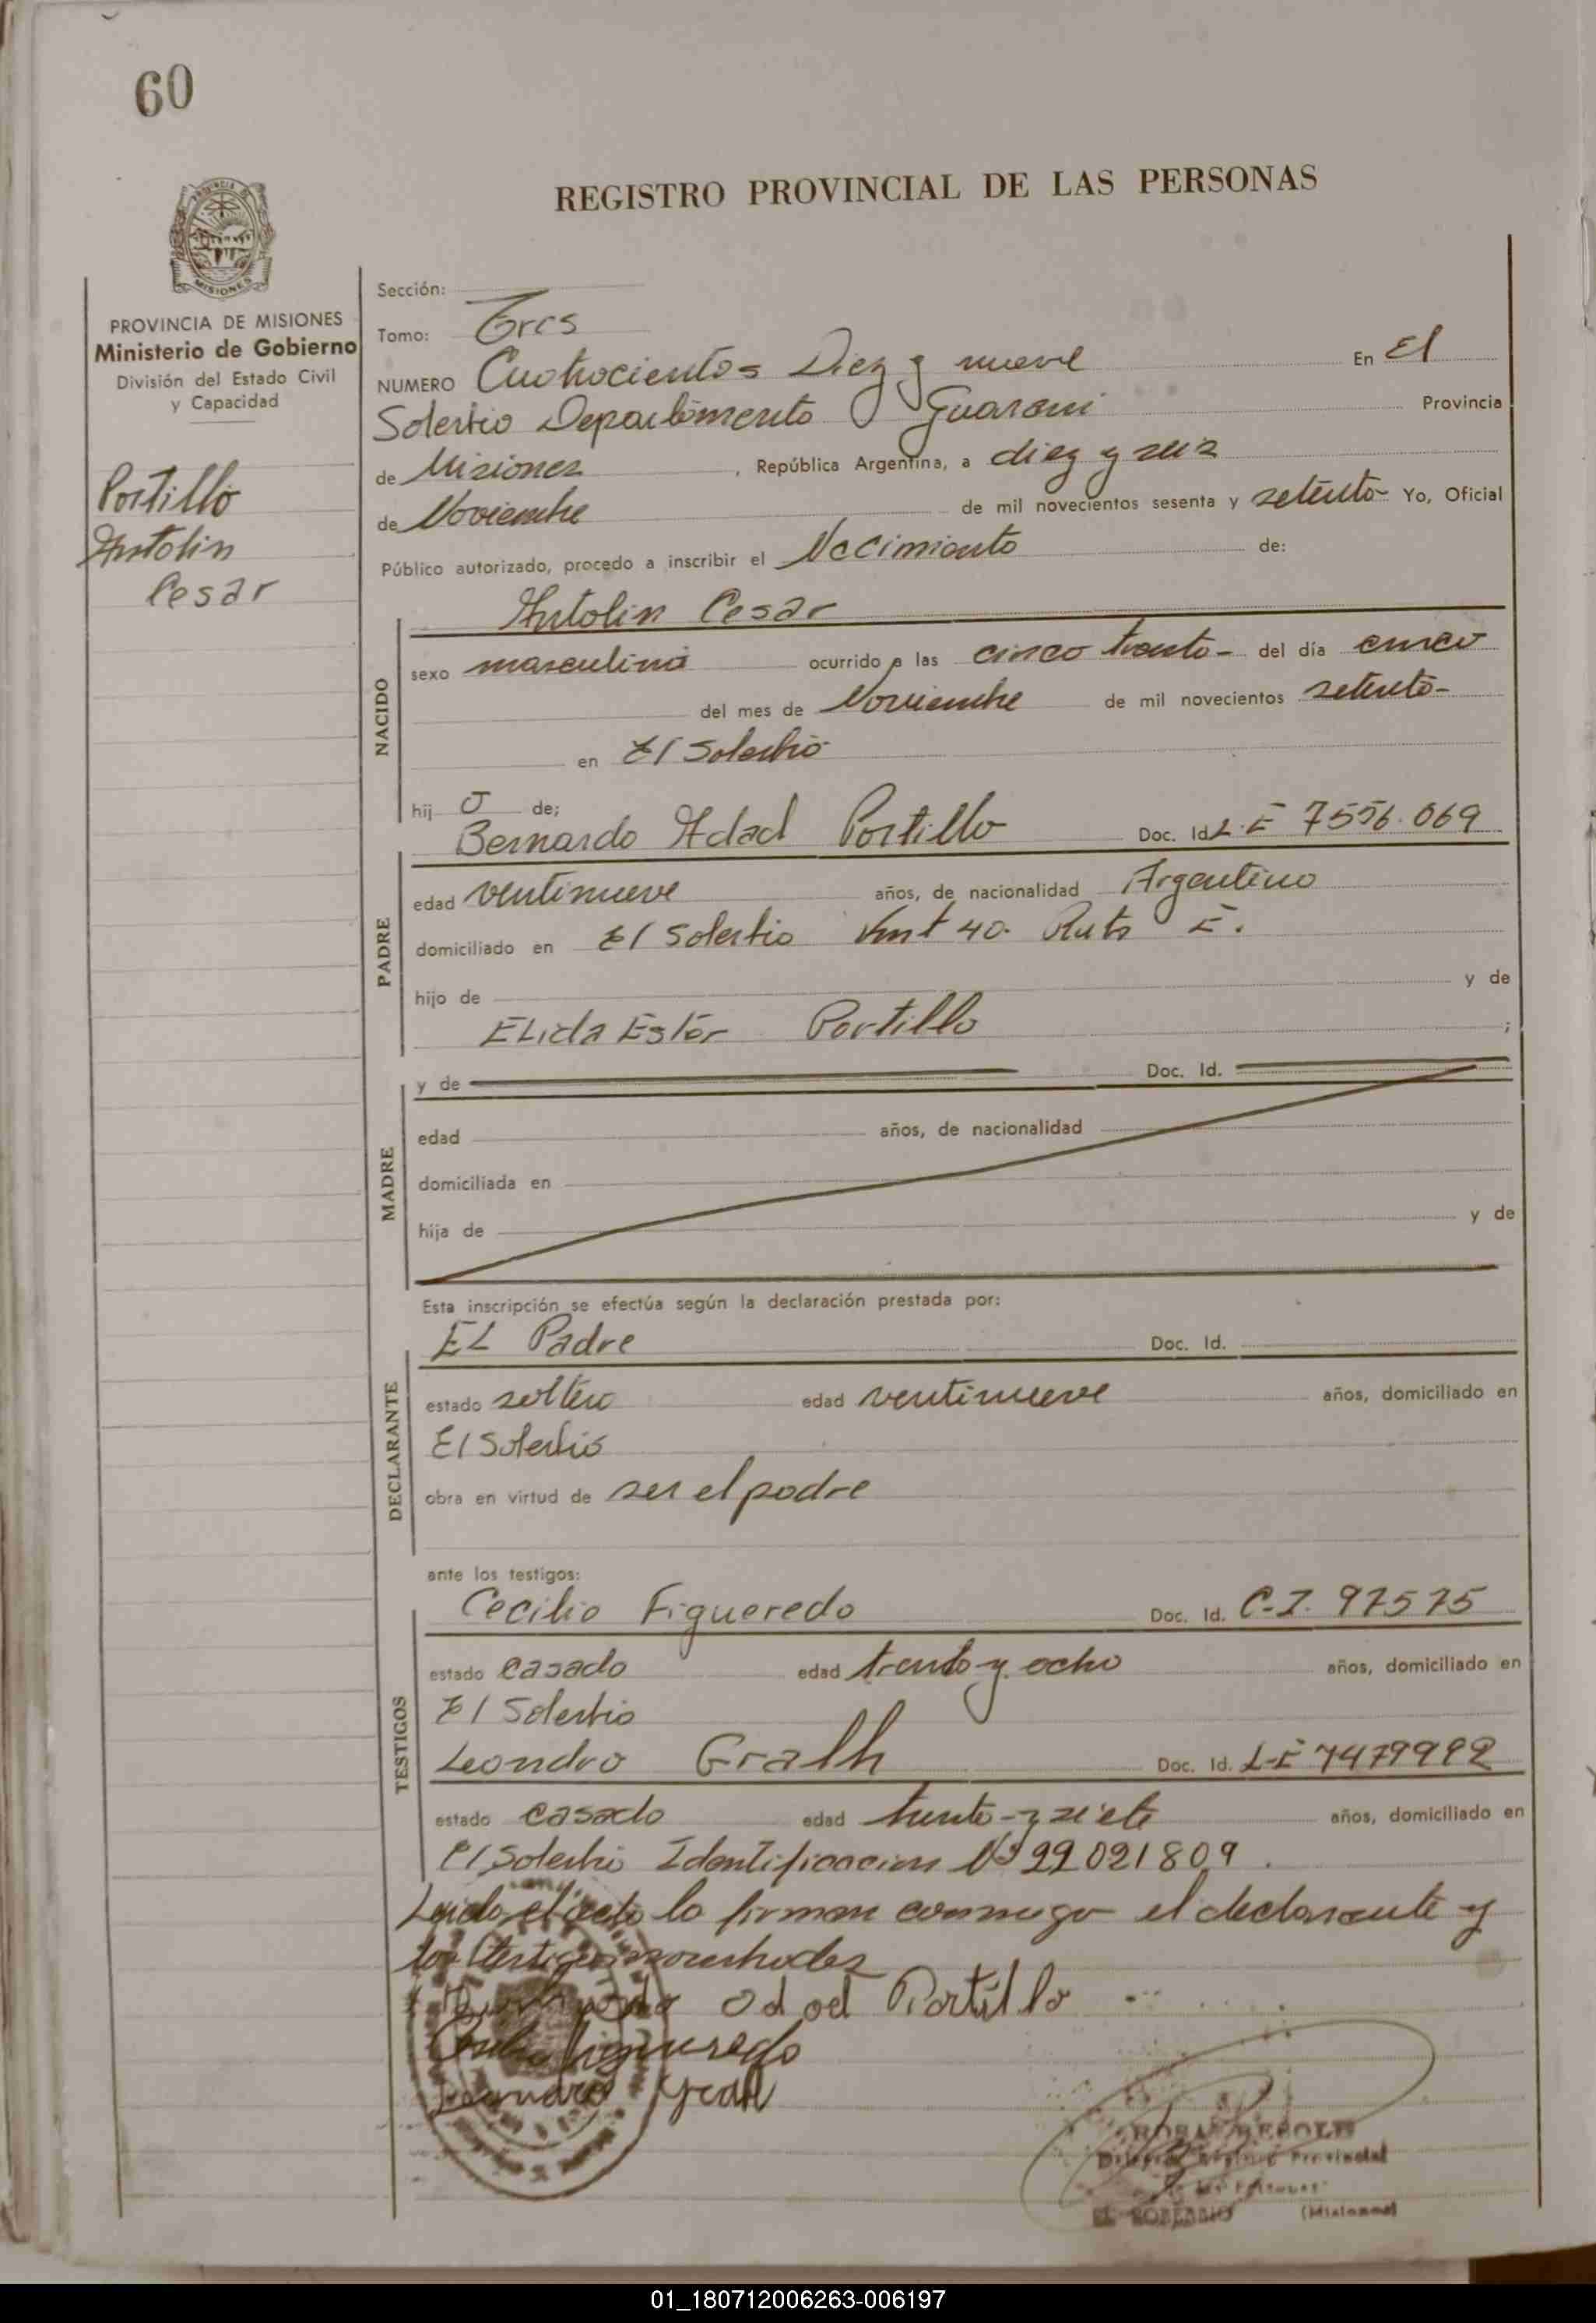 60
REGISTRO PROVINCIAL DE LAS PERSONAS
MISIONES
PROVINCIA DE MISIONES
Ministerio de Gobierno
División del Estado Civil
y Capacidad
Portillo
Antolin
Cesar
Sección:
Tomo: Tres
NUMERO Cuatrocientos Diez y nueve En El
Soberbio Departamento Guarani Provincia
de Misiones, República Argentina, a diez y seis
de Noviembre de mil novecientos sesenta y setenta- Yo, Oficial
Público autorizado, procedo a inscribir el Nacimiento de:
Antolin Cesar
NACIDO
sexo masculino ocurrido a las cinco treinta- del día cinco
del mes de Noviembre de mil novecientos setenta-
en El Soberbio
hijo de;
Bernardo Adad Portillo Doc. Id. L.E 7556.069
PADRE
edad ventinueve años, de nacionalidad Argentino
domiciliado en El Soberbio Kmt 40. Ruta
hijo de y de
Elida Ester Portillo ;
MADRE
y de Doc. Id.
edad años, de nacionalidad
domiciliada en
hija de y de
Esta inscripción se efectúa según la declaración prestada por:
EL Padre Doc. Id.
DECLARANTE
estado soltero edad ventinueve años, domiciliado en
El Soberbio
obra en virtud de ser el padre
ante los testigos:
Cecilio Figueredo Doc. Id. C.I. 97575
TESTIGOS
estado casado edad treinta y ocho años, domiciliado en
El Soberbio
Leandro Gralh Doc. Id. L-E 7479992
estado casado edad treinta-y siete años, domiciliado en
El Soberbio Identificacion Nº 22021809.
Leida el acta la firman conmigo el declarante y
los testigos
odad Portillo
Figueredo
Leandro Gralh
EL SOBERBIO (Misiones)
01_180712006263-006197